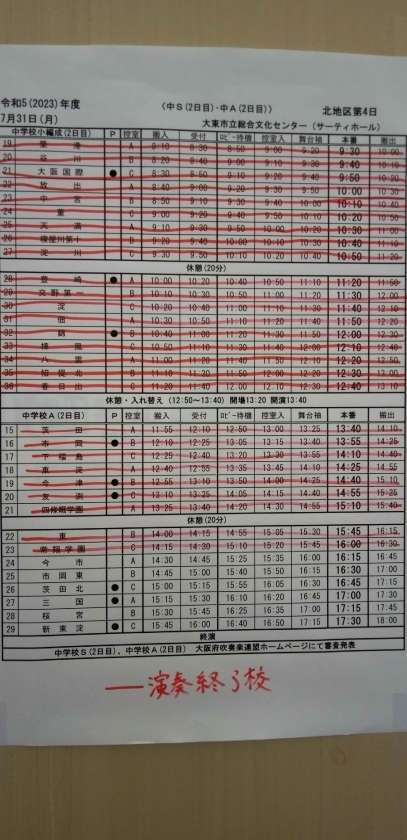 令和5(2023)年度 （中S(2日目)・中A(2日目)） 北地区第4日
7月31日(月) 大東市立総合文化センター（サーティホール）
中学校小編成(2日目) P 控室 搬入 受付 ﾛﾋﾞｰ待機 控室入 舞台袖 本番 搬出
19 A 8:10 8:30 8:50 9:00 9:20 9:30 10:00
20 谷川 B 8:20 8:40 9:00 9:10 9:30 9:40 10:10
21 大阪国際 ● C 8:30 8:50 9:10 9:20 9:40 9:50 10:20
22 放出 A 8:40 9:00 9:20 9:30 9:50 10:00 10:30
23 中宮 B 8:50 9:10 9:30 9:40 10:00 10:10 10:40
24 C 9:00 9:20 9:40 9:50 10:10 10:20 10:50
25 天満 A 9:10 9:30 9:50 10:00 10:20 10:30 11:00
26 寝屋川第十 B 9:20 9:40 10:00 10:10 10:30 10:40 11:10
27 淀川 C 9:30 9:50 10:10 10:20 10:40 10:50 11:20
休憩(20分)
28 豊崎 ● A 10:00 10:20 10:40 10:50 11:10 11:20 11:50
29 交野第一 B 10:10 10:30 10:50 11:00 11:20 11:30 12:00
30 淀 C 10:20 10:40 11:00 11:10 11:30 11:40 12:10
31 佃 A 10:30 10:50 11:10 11:20 11:40 11:50 12:20
32 錦 ● B 10:40 11:00 11:20 11:30 11:50 12:00 12:30
33 楠風 C 10:50 11:10 11:30 11:40 12:00 12:10 12:40
34 八雲 A 11:00 11:20 11:40 11:50 12:10 12:20 12:50
35 招提北 B 11:10 11:30 11:50 12:00 12:20 12:30 13:00
36 春日出 C 11:20 11:40 12:00 12:10 12:30 12:40 13:10
休憩・入れ替え (12:50～13:40) 開場13:20 開演13:40
中学校A(2日目) P 控室 搬入 受付 ﾛﾋﾞｰ待機 控室入 舞台袖 本番 搬出
15 茨田 A 11:55 12:10 12:50 13:00 13:25 13:40 14:10
16 市岡 ● B 12:10 12:25 13:05 13:15 13:40 13:55 14:25
17 下福島 C 12:25 12:40 13:20 13:30 13:55 14:10 14:40
18 東淀 A 12:40 12:55 13:35 13:45 14:10 14:25 14:55
19 今津 ● B 12:55 13:10 13:50 14:00 14:25 14:40 15:10
20 友渕 ● C 13:10 13:25 14:05 14:15 14:40 14:55 15:25
21 四條畷学園 A 13:25 13:40 14:20 14:30 14:55 15:10 15:40
休憩(20分)
22 東 B 14:00 14:15 14:55 15:05 15:30 15:45 16:15
23 常翔学園 C 14:15 14:30 15:10 15:20 15:45 16:00 16:30
24 今市 A 14:30 14:45 15:25 15:35 16:00 16:15 16:45
25 市岡東 B 14:45 15:00 15:40 15:50 16:15 16:30 17:00
26 茨田北 ● C 15:00 15:15 15:55 16:05 16:30 16:45 17:15
27 三国 ● A 15:15 15:30 16:10 16:20 16:45 17:00 17:30
28 桜宮 B 15:30 15:45 16:25 16:35 17:00 17:15 17:45
29 新東淀 ● C 15:45 16:00 16:40 16:50 17:15 17:30 18:00
終演
中学校S(2日目)、中学校A(2日目) 大阪府吹奏楽連盟ホームページにて審査発表
―演奏終了校